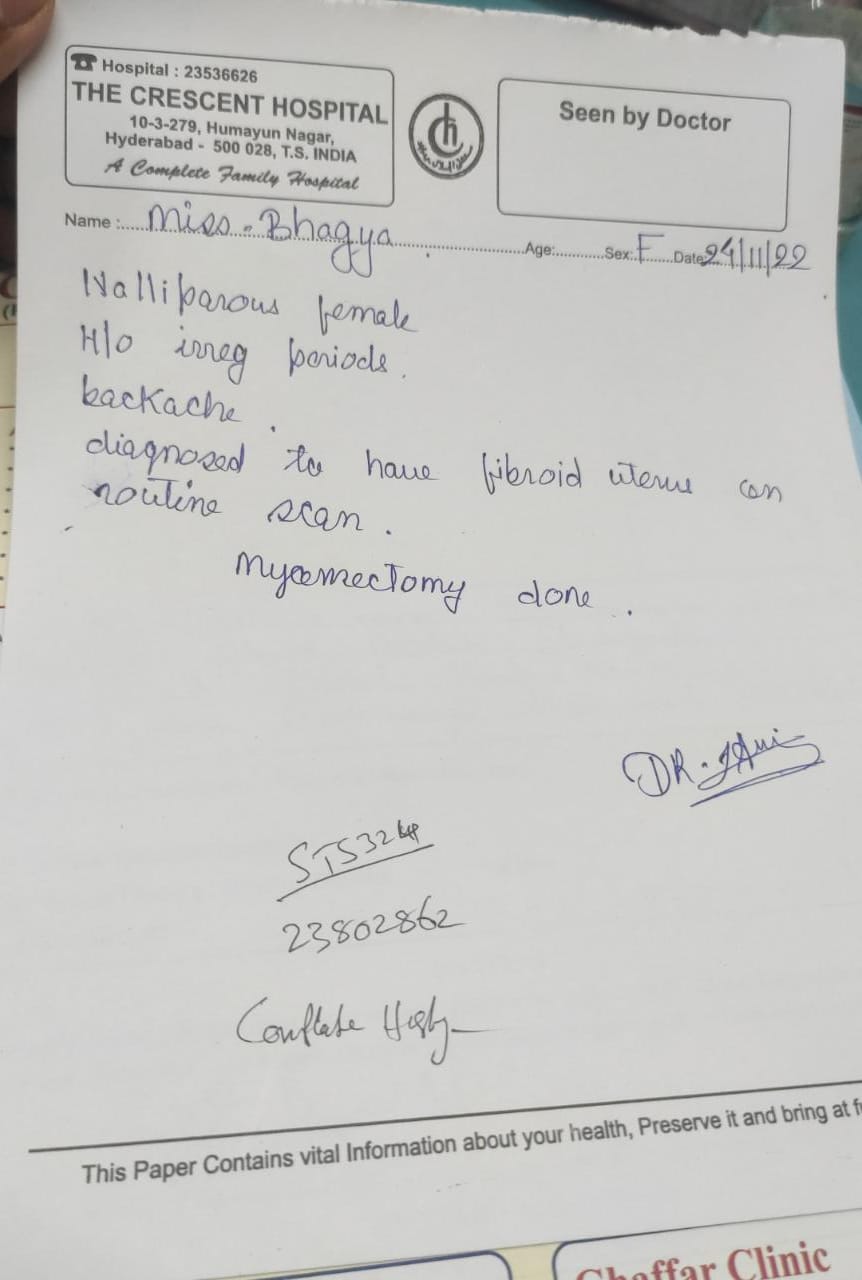 Hospital : 23536626
THE CRESCENT HOSPITAL
10-3-279, Humayun Nagar,
Hyderabad - 500 028, T.S. INDIA
A Complete Family Hospital
ch
Seen by Doctor
Name :...... Miss. Bhagya ......Age:............Sex:. F ......Date 24/11/22
Nalliparous female
H/o irreg periods.
backache.
diagnosed to have fibroid uterus on
routine scan.
Myoomectomy done.
DR.
STS324
23802862
This Paper Contains vital Information about your health, Preserve it and bring at f
Ghaffar Clinic